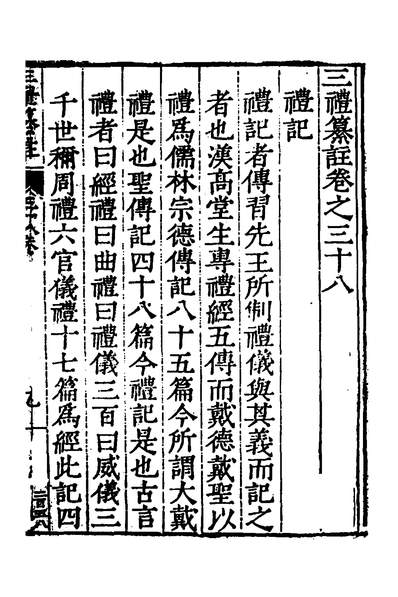 三禮纂註卷之三十八
禮記
禮記者傳習先王所制禮儀與其義而記之
者也漢高堂生專禮經五傳而戴德戴聖以
禮爲儒林宗德傳記八十五篇今所謂大戴
禮是也聖傳記四十八篇今禮記是也古言
禮者曰經禮曰曲禮曰禮儀三百曰威儀三
千世稱周禮六官儀禮十七篇爲經此記四